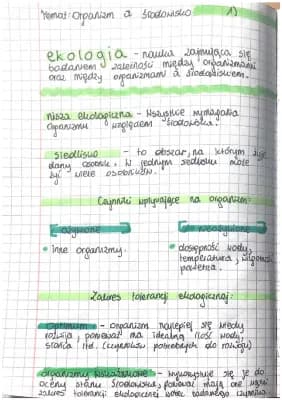 Temat: Organizm a środowisko 1)
ekologia - nauka zajmująca się
badaniem zależności między organizmami
oraz między organizmami a środowiskiem.
nisza ekologiczna - Wszystkie wymagania
organizmu względem środowiska.
siedlisko - to obszar, na którym żyje
dany osobnik. W jednym siedlisku może
żyć wiele osobników.
Czynniki wpływające na organizm:
ożywione nieożywione
• inne organizmy. • dostępność wody,
temperatura, wilgotność
powietrza.
Zakres tolerancji ekologicznej:
optimum - organizm najlepiej się wtedy
rozwija, ponieważ ma idealną ilość wody,
słońca itd. (czynników potrzebnych do rozwoju)
organizmy wskaźnikowe - wykorzystuje się je do
oceny stanu środowiska, ponieważ mają one wąski
zakres tolerancji ekologicznej wobec badanego czynnika